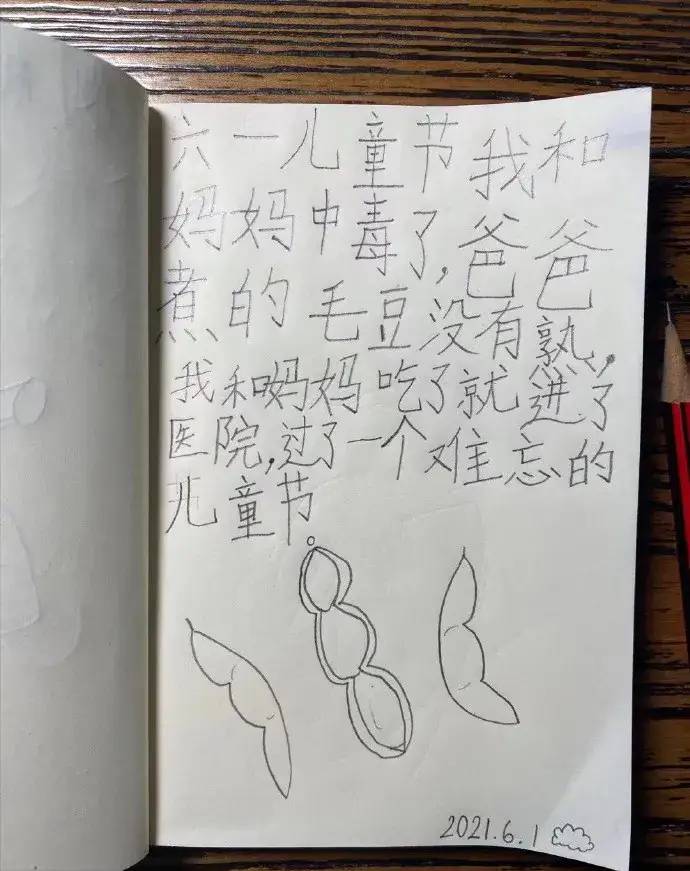 六一儿童节我和
妈妈中毒了,爸爸
煮的毛豆没有熟,
我和妈妈吃了就进了
医院,过了一个难忘的
儿童节。
2021.6.1